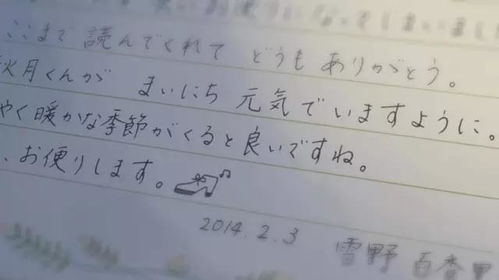 ここまで 読んでくれて どうも ありがとう。
秋月くんが まいにち 元気でいますように。
やく暖かな季節がくると良いですね。
、お便りします。
2014.2.3
雪野 百香里